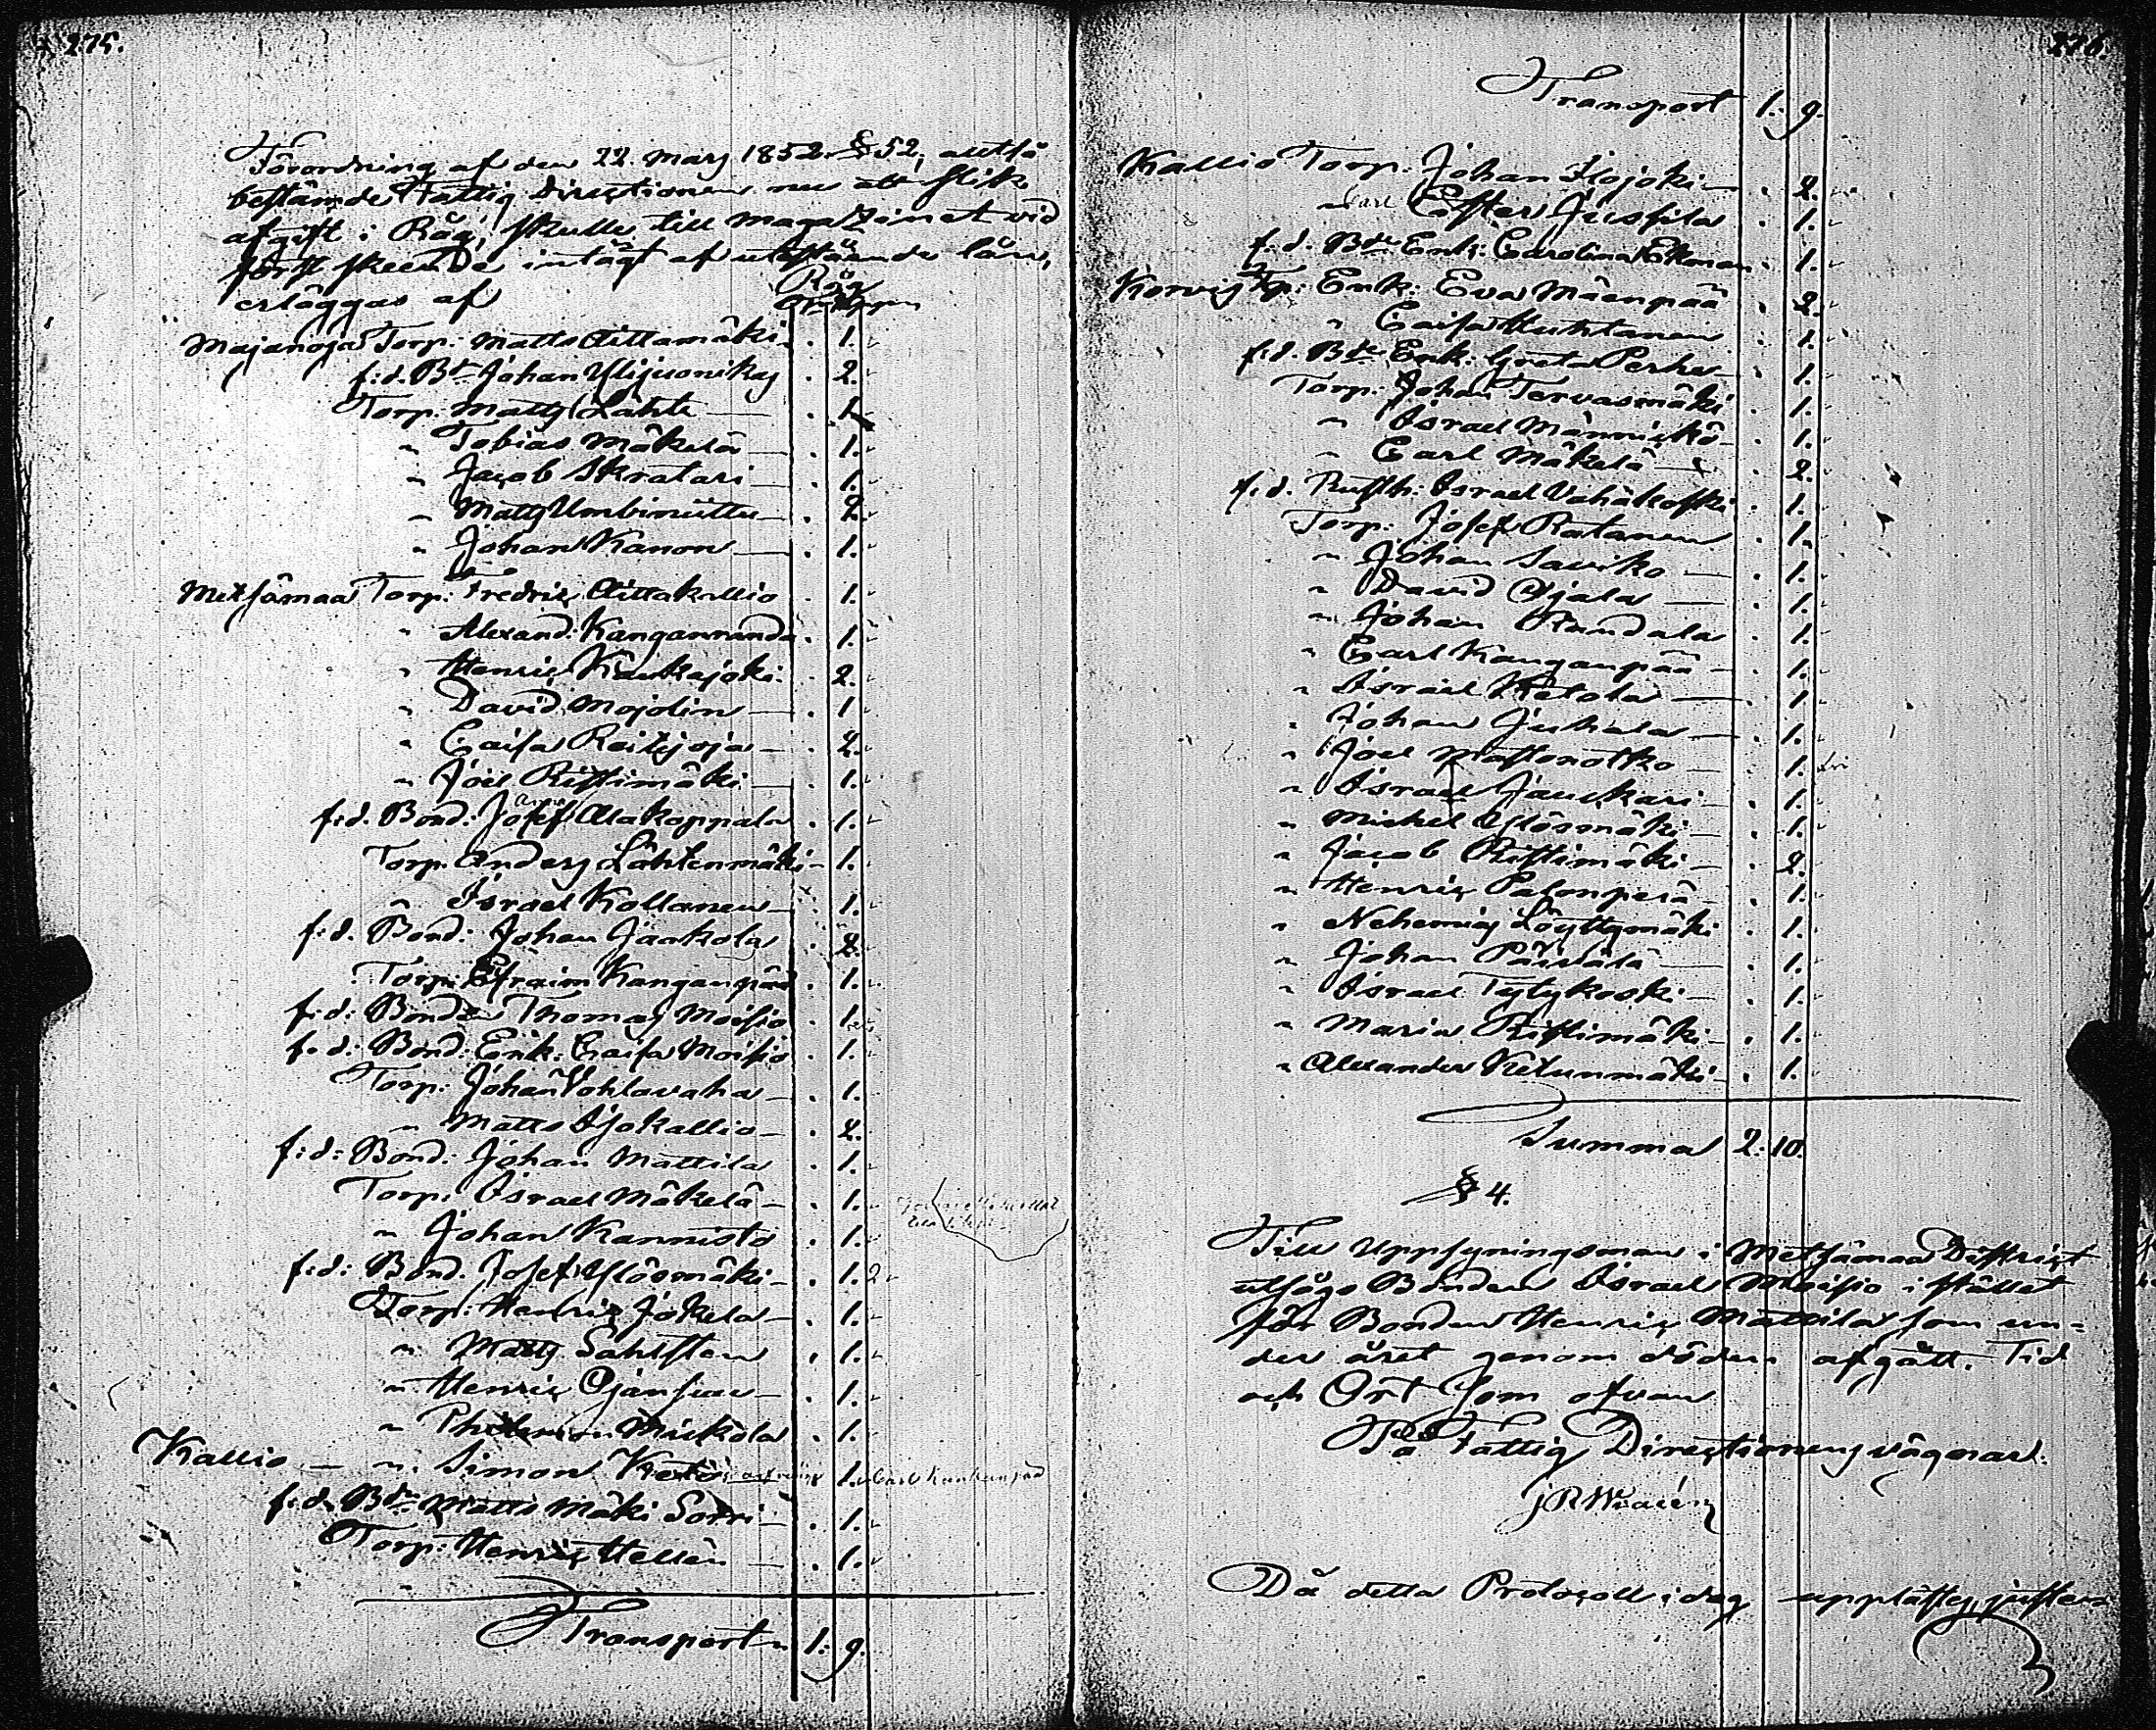 275.
Förordning af den 22 Mars 1852 § 52, alltså
bestämde Fattig Directionen nu att slik
afgift i Råg, skulle till Magazinet vid
först skeende intägt af utestående lån,
erläggas af
Råg
Majanoja Torp: Matts Aittamäki . 1.
f:d. Bd Johan Ylijuonikas . 2.
Torp. Matts Lähte — . 1.
" Tobias Mäkelä — . 1.
" Jacob Skratari — . 1.
" Matts — . 2.
" Johan Kanon — . 1.
Metsämaa Torp: Fredric Aittakallio . 1.
" Alexand: Kanganranda . 1.
" Henric Kaukajoki . 2.
" David Mojolin — . 1
" Caisa Reitijoja — . 2.
" Joel Ristimäki — . 1.
f:d. Bond: Josef Alakoppala . 1.
Torp. Anders Lähtenmäki - 1.
" Israel Kollanen — . 1.
f:d. Bond: Johan Jaakola . 2.
Torp: Efraim Kanganpää . 1.
f:d: Bond: Thomas Moisio . 1.
f:d: Bond: Enk: Caisa Moisio . 1.
Torp: Johan — . 1.
" Matts Isokallio — . 2.
f:d: Bond: Johan Mattila . 1.
Torp: Israel Mäkelä — . 1.
" Johan Kannisto . 1.
f:d: Bond. Josef Ylösmäki — . 1. 2
Torp: Henric Jokela — . 1.
" Matts Sahlsten . 1.
" Henric Ojansuu — . 1.
" Mickola . 1.
Kallio — " Simon 1.
f:d. Bdn Matts Mäki Sorri — . 1.
Torp: Henric Hellén — . 1.
Transport 1: 9.
276.
Transport 1: 9.
Kallio Torp: Johan Ilojoki — . 2.
" Carl Jussila . 1.
f:d. Bde Enk: Carolina Ekman . 1.
Torp: Enk: Eva Mäenpää . 2.
" Caisa Huhtanen . 1.
f:d. Bde Enk: Greta Perhe — . 1.
Torp: Johan Tervasmäki . 1.
" Israel Männistö — . 1.
" Carl Mäkelä — . 2.
f:d. Rusth: Israel Vähäkoski . 1.
Torp: Josef Ratanen . 1.
" Johan Saviko — . 1.
" David Ojala — . 1.
" Johan Randala . 1.
" Carl Kanganpää — . 1.
" Israel Ketola — . 1.
" Johan Juhala — . 1.
" Joel — . 1.
" Israel Jauckari — . 1.
" Michel Ylösmäki — . 1.
" Jacob Ristimäki — . 2.
" Henric Palonperä — . 1.
" Nehemias Löyttymäki . 1.
" Johan Päivälä — . 1.
" Israel Tytykoski — . 1.
" Maria Ristimäki — . 1.
" Alexander Ketunmäki — . 1.
Summa 2: 10.
§ 4.
Till Uppsyningsman i Metsämaa District
utsågs Bonden Israel Moisio i stället
för Bonden Henric Mattila som un=
der året genom döden afgått. Tid
och Ort som ofvan
På Fattig Directionens vägnar.
Då detta Protocoll i dag upplästes, justera